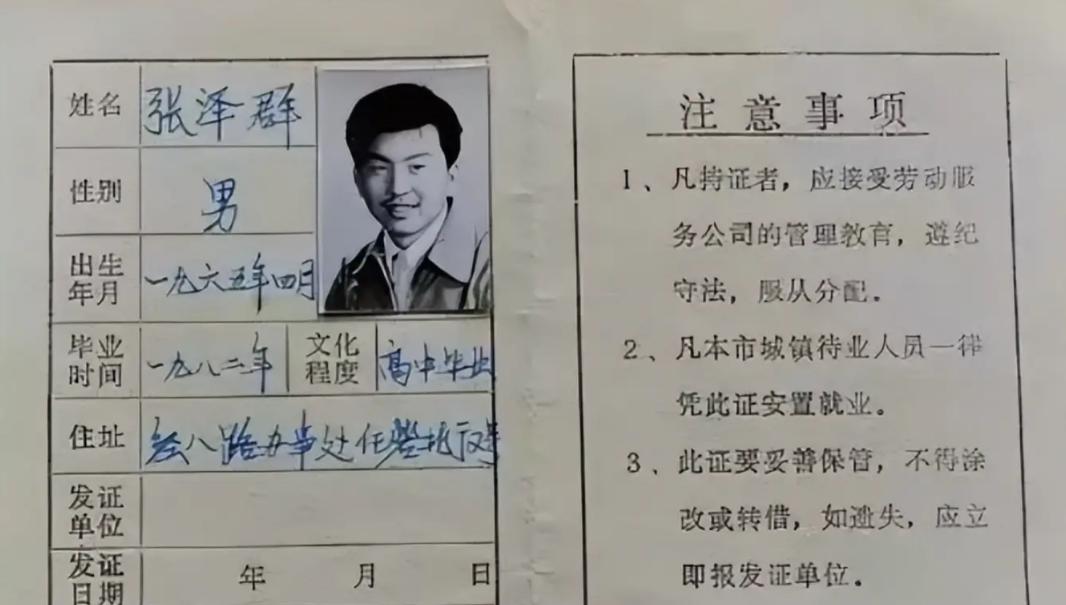 姓名 张泽群
性别 男
出生年月 一九六五年四月
毕业时间 一九八二年 文化程度 高中毕业
住址 经八路办事处任砦北
发证单位
发证日期 年 月 日
注意事项
1、凡持证者，应接受劳动服
务公司的管理教育，遵纪
守法，服从分配。
2、凡本市城镇待业人员一律
凭此证安置就业。
3、此证要妥善保管，不得涂
改或转借，如遗失，应立
即报发证单位。